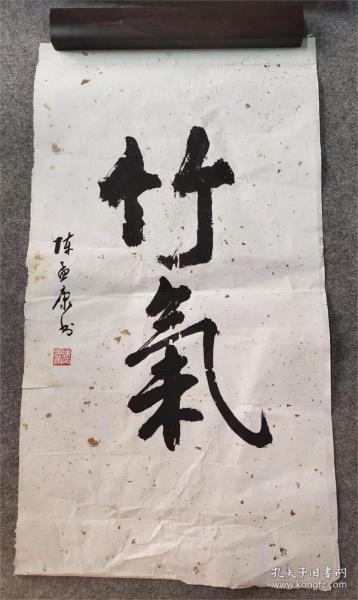 竹氣
陈孟康书
孔夫子旧书网
www.kongfz.com